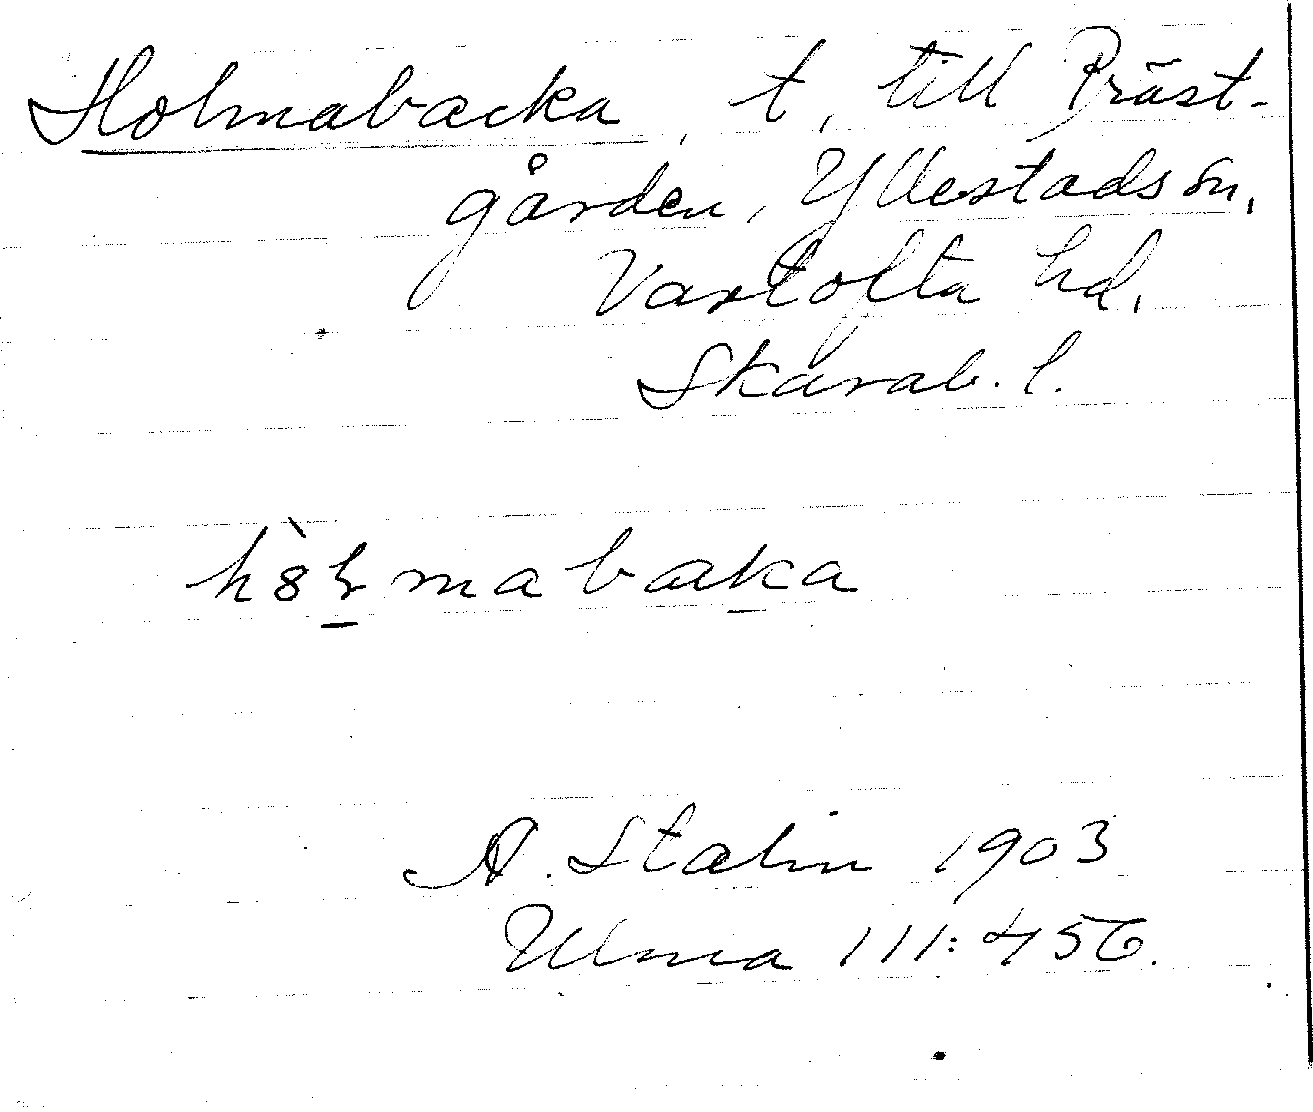 Holmabacka, t, till Präst-
gården, Yllestads sn,
Vartofta hd,
Skarab. l.
mabaka
A. Stalin 1903
Ulma 111:456.